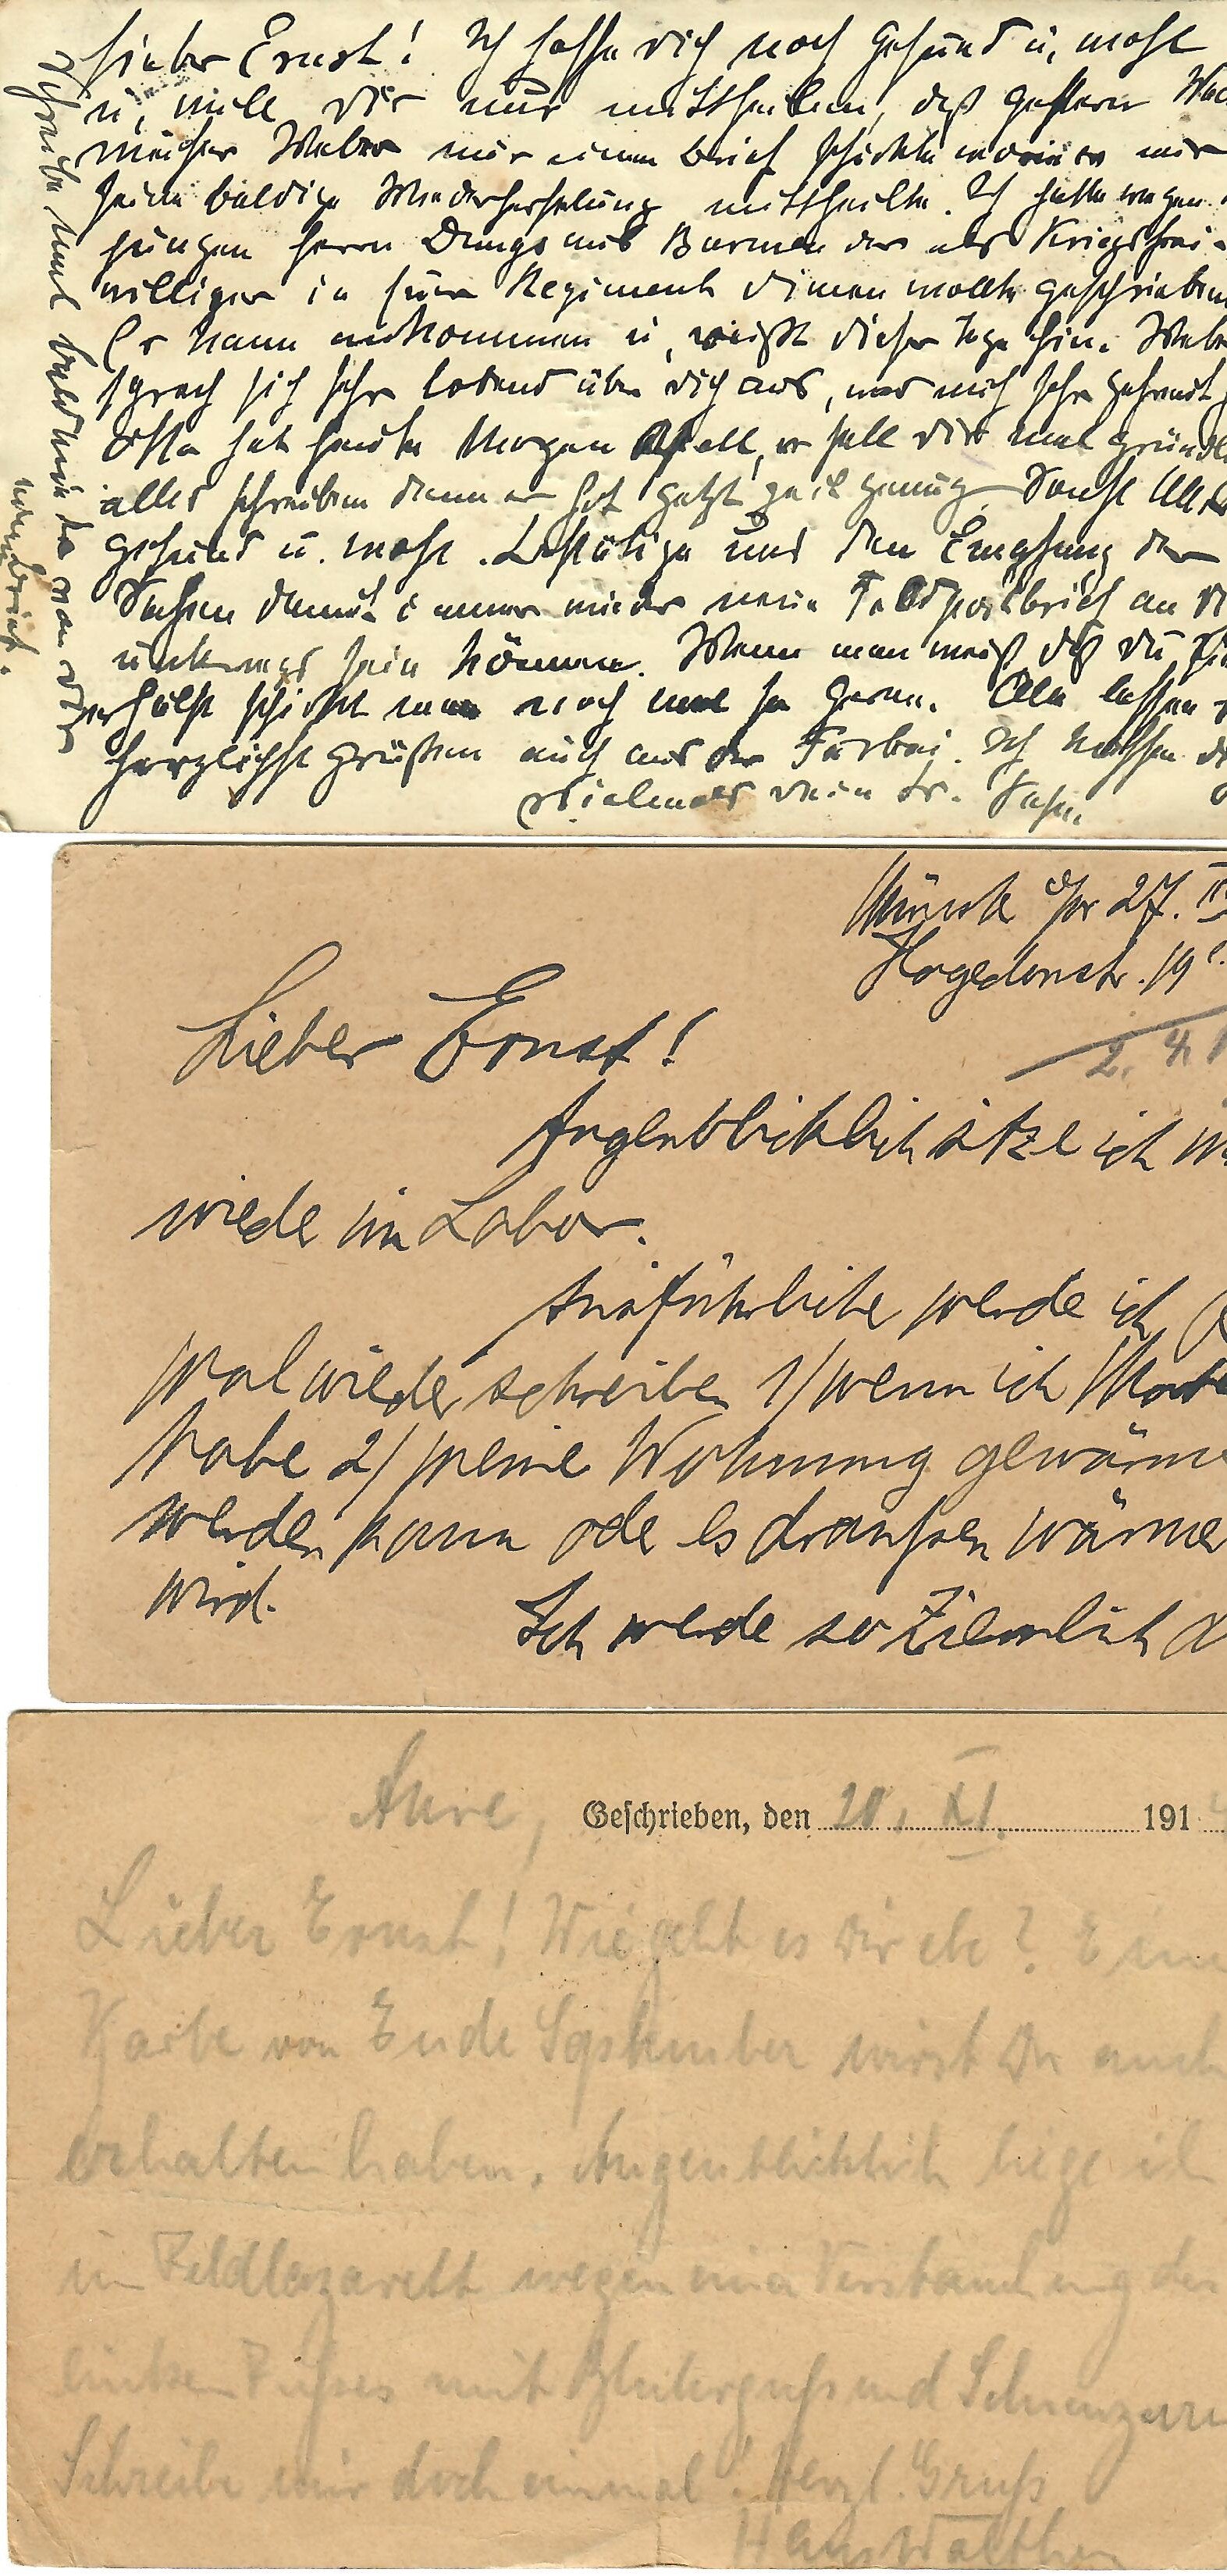 Lieber Ernst! Ich hoffe dich noch gesund u. wohl
u. will dir nur mittheilen, daß gestern
meister Weber mir einen Brief schickte worin er mir
seine baldige Wiederherstellung mittheilte. Ich hatte wegen
jungen Herrn Dungs aus Barmen der als Kriegsfrei-
williger in Eurer Regiment dienen wollte geschrieben
Er kann ankommen u. reißt dieser Tage hin. Weber
sprach sich sehr lobend über dich aus, was mich sehr gefreut
Otto hat heute Morgen er soll dir mal gründl
alles schreiben denn er hat jetzt Zeit genug. Sonst Alles
gesund u. wohl. Bestätige uns den Empfang der
Sachen damit immer wieder neue Feldpostbrief an
unterwegs sein können. Wenn man weiß daß du
erhälst schickt man noch mal so gern. Alle lassen
herzlichst grüßen auch aus der Färberei. Ich
vielmals dein tr.
Schreibe mal bald
Münster 27.
Hagedornstr. 19
2. 4.
Lieber Ernst!
Augenblicklich sitze ich
wieder im Labor.
Ausführlicher werde ich
mal wieder schreiben 1/ wenn ich
habe 2/ meine Wohnung gewärmt
werden kann oder es draußen wärmer
wird.
Ich werde so ziemlich
Aure, Geschrieben, den 20. XI. 191
Lieber Ernst! Wie geht es Dir
Karte von Ende September wirst Du auch
erhalten haben. Augenblicklich liege ich
im Feldlazarett wegen einer Verstauchung des
linken Fußes mit Bluterguß und
Schreibe mir doch einmal! Herzl. Gruß
Hans Walther